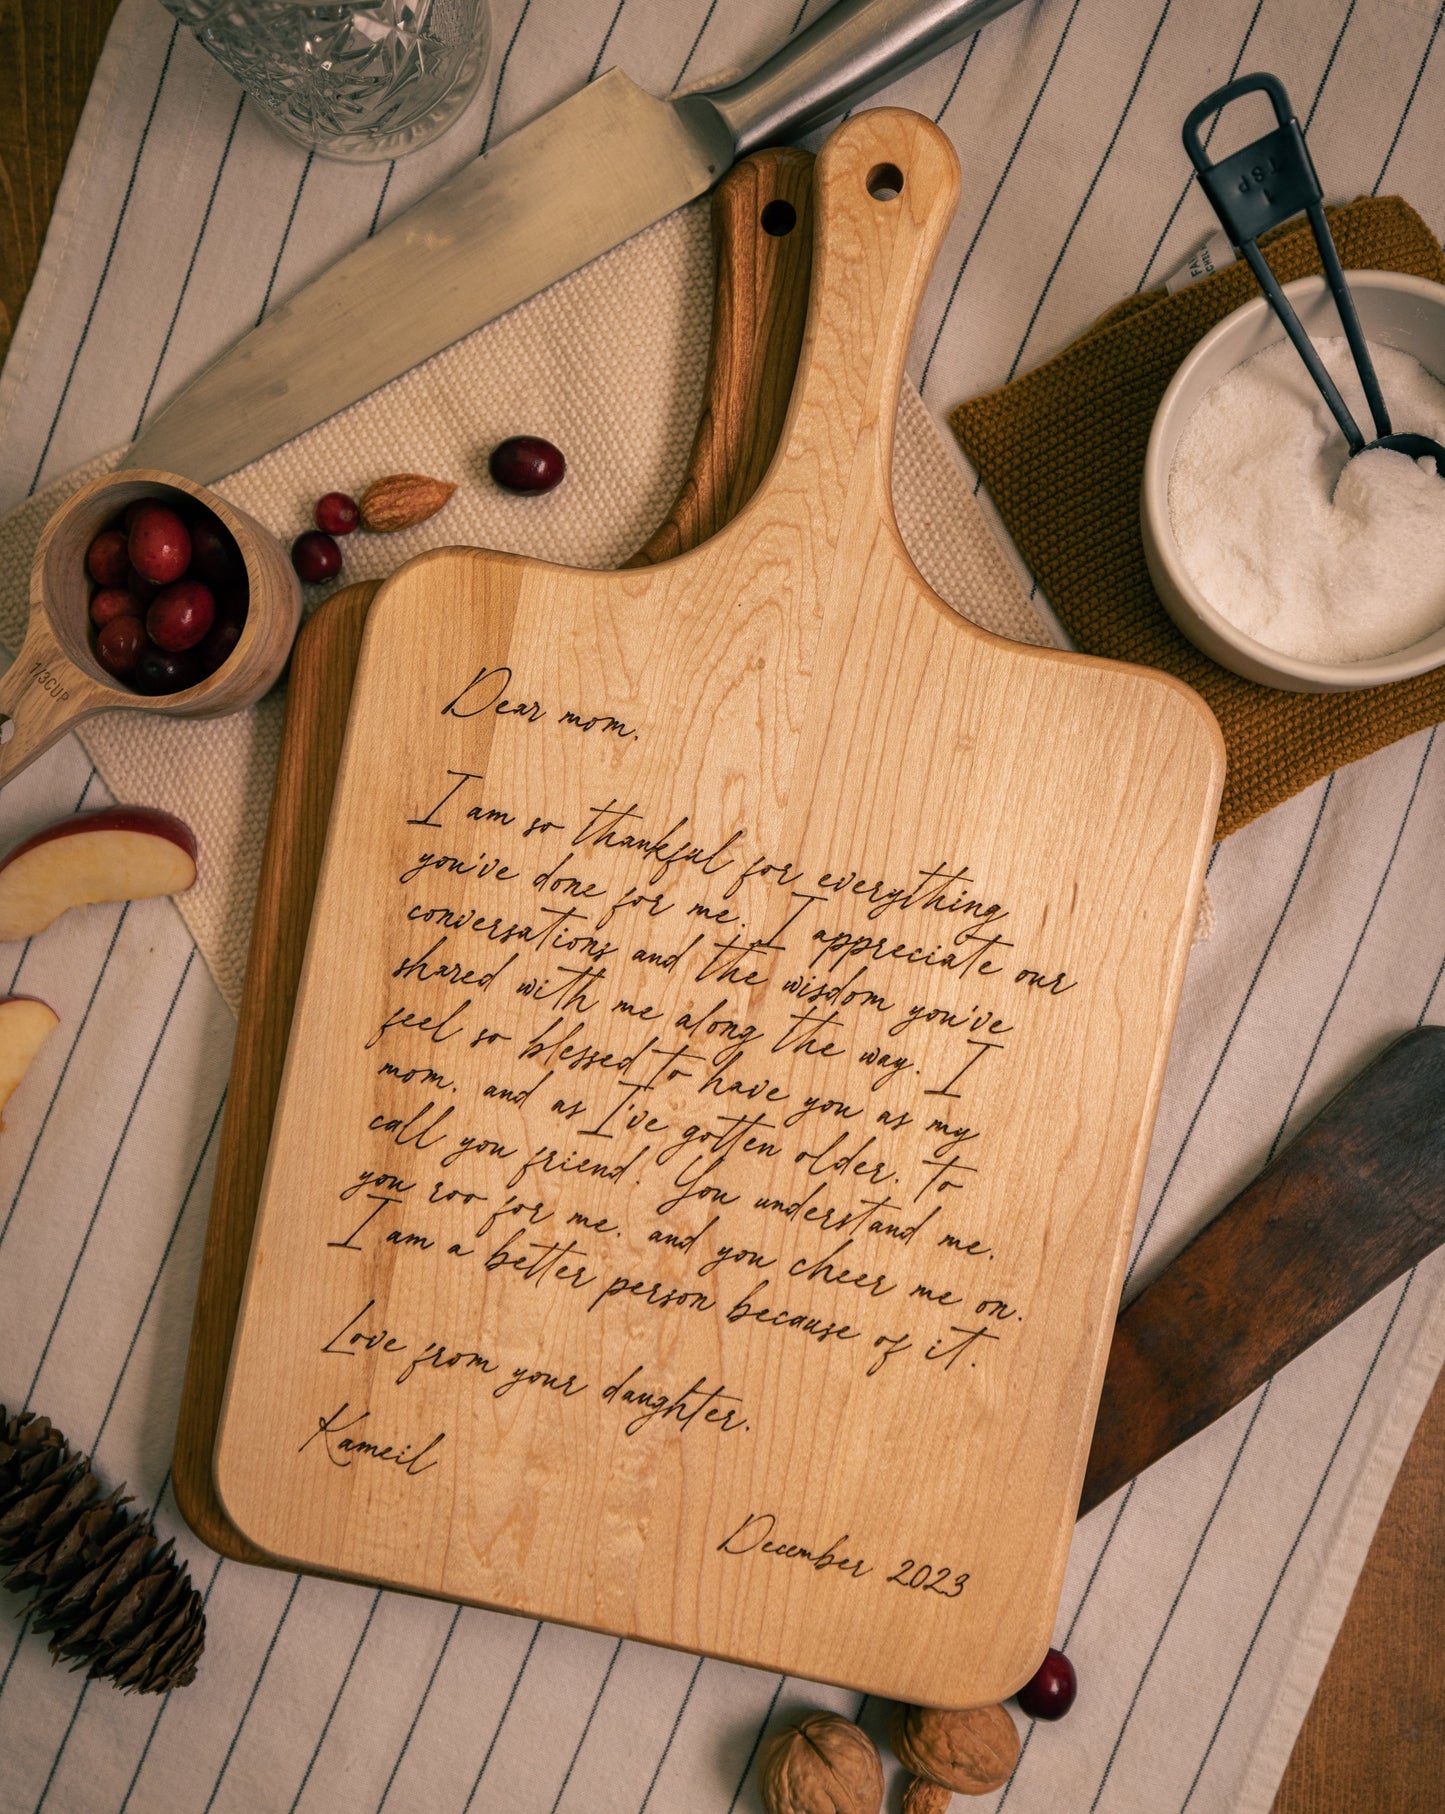 Dear mom,
I am so thankful for everything
you've done for me. I appreciate our
conversations and the wisdom you've
shared with me along the way. I
feel so blessed to have you as my
mom, and as I've gotten older, to
call you friend. You understand me,
you roo for me, and you cheer me on.
I am a better person because of it.
Love from your daughter,
Kameil
December 2023
1/3CUP
TSP
1